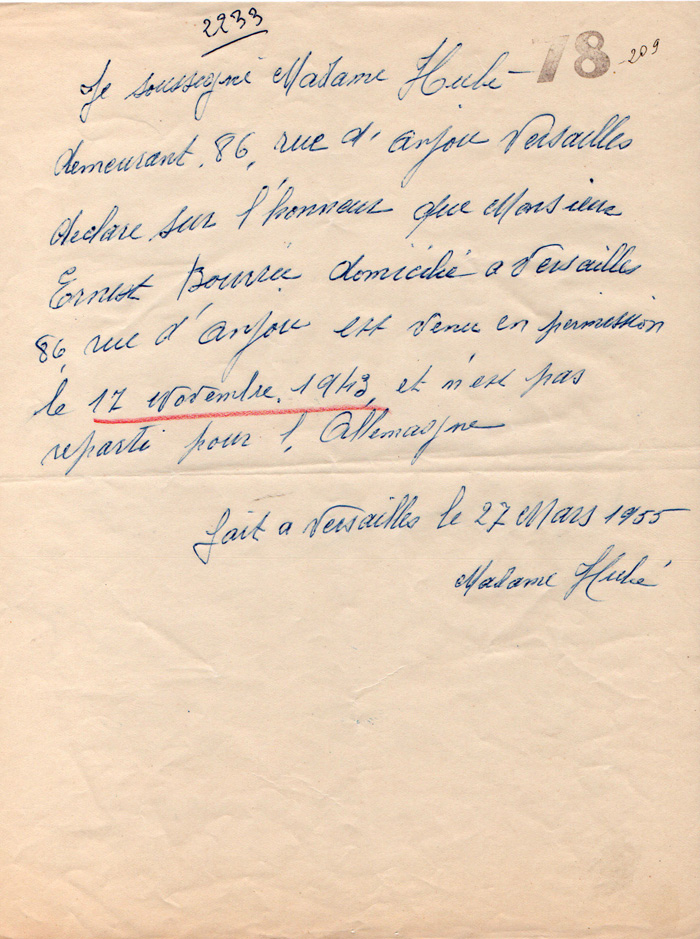 2233
78 - 209
Je soussigné Madame Hubé
demeurant, 86, rue d'anjou Versailles
declare sur l'honneur que Monsieur
Ernest Bourrée domicilié a Versailles
86, rue d'anjou est venu en permission
le 17 Novembre, 1943, et n'est pas
reparti pour l'Allemagne
fait a Versailles le 27 Mars 1955
Madame Hubé